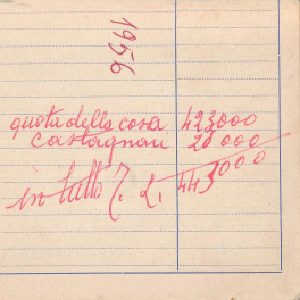 1956
quota della cosa 423000
castagnau 20 000
in tutto £. 443000